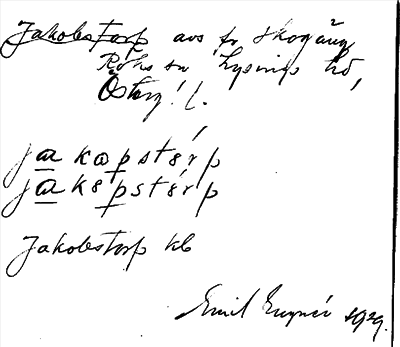 Jakobstorp avs fr Skogäng
Röks sn Lysings hd,
Österg. l.
jakapstérp
jakəpstérp
Jakobstorp kb
Emil 1929.